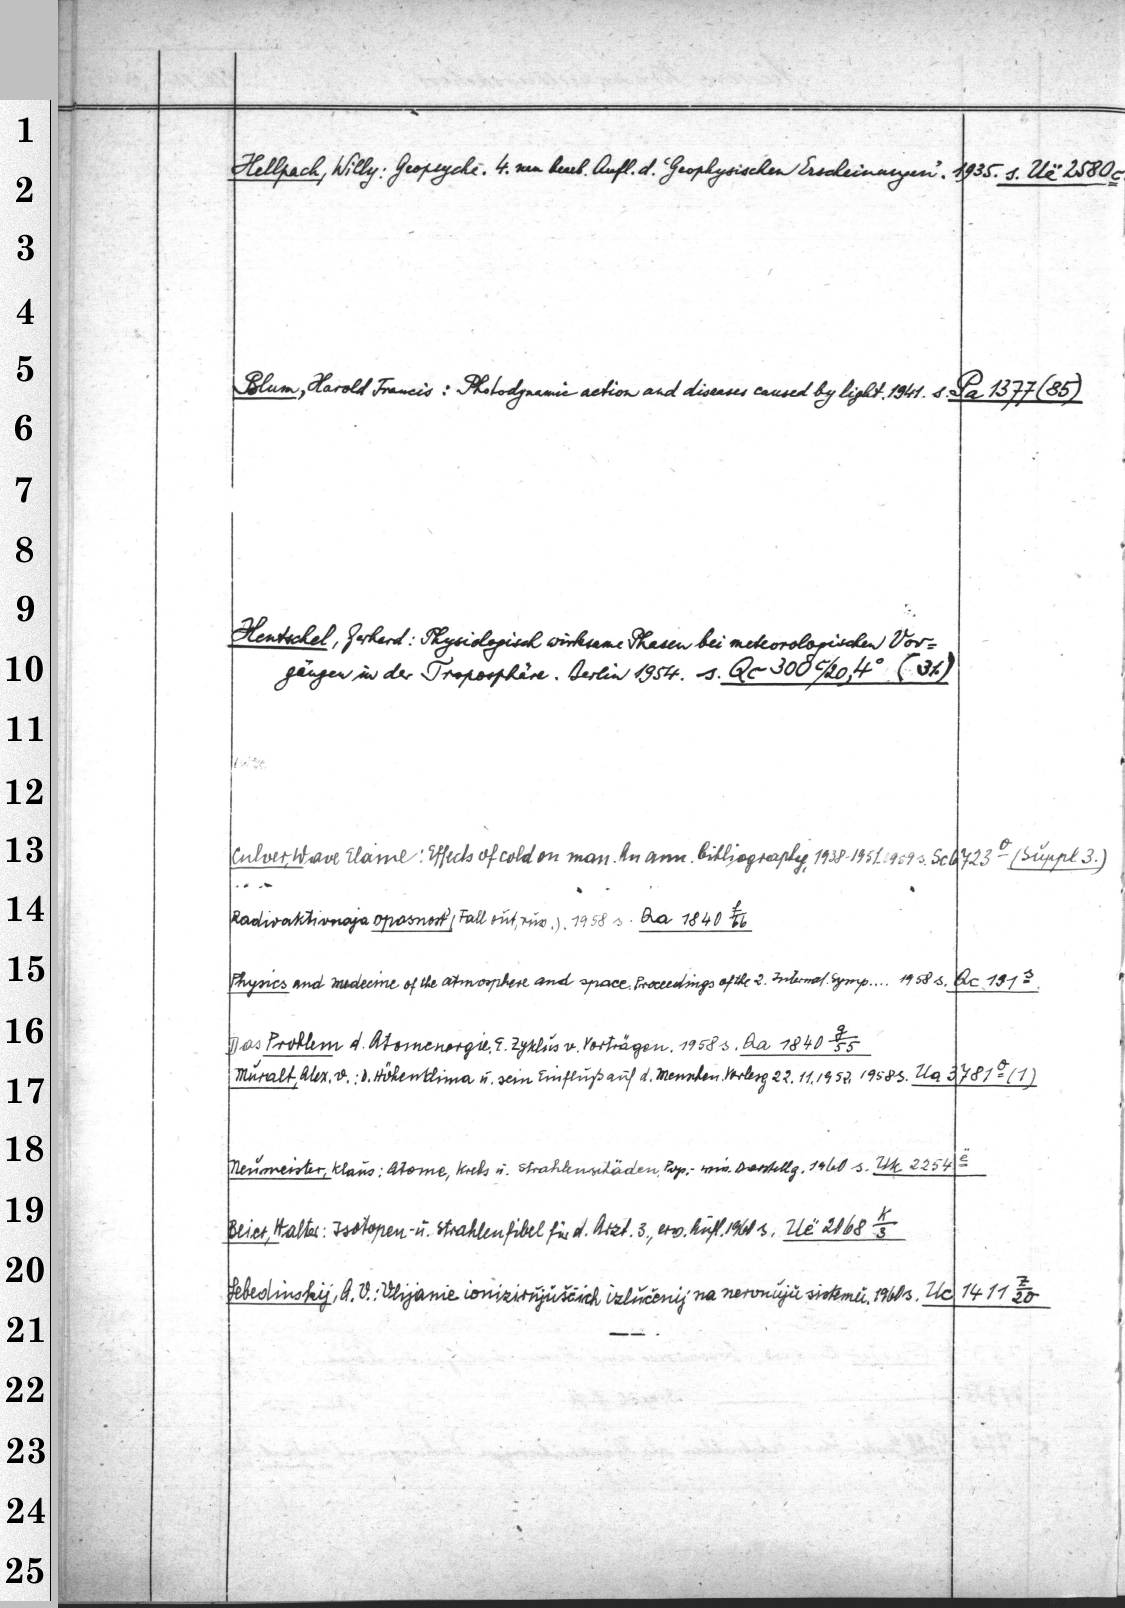 1
2
3
4
5
6
7
8
9
10
11
12
13
14
15
16
17
18
19
20
21
22
23
24
25
Hellpach, Willy: Geopsyche. 4. neu bearb. Aufl. d. "Geophysischen Erscheinungen". 1935. s. Uë 2580 c
Blum, Harold Francis: Photodynamic action and diseases caused by light. 1941. s. Pa 1377 (85)
Hentschel, Gerhard: Physiologisch wirksame Phasen bei meteorologischen Vor=
gängen in der Troposphäre. Berlin 1954. s. Qc 300 c/20,4° (31)
Culver, Wave Elaine: Effects of cold on man. An ann. bibliography, 1938-1951. 1959 s. Sc 6723 o (Suppl 3.)
Radioaktivnaja opasnost' (Fall out, russ.). 1958 s. Qa 1840 f/66
Physics and medecine of the atmosphere and space. Proceedings of the 2. Internat. Symp.... 1958 s. Qc 191 s
Das Problem d. Atomenergie. E. Zyklus v. Vorträgen. 1958 s. Qa 1840 g/55
Muralt, Alex. v.: D. Höhenklima u. sein Einfluß auf d. Menschen. Vorlesg 22.11.1957. 1958 s. Ua 3781 o (1)
Neumeister, Klaus: Atome, Krebs u. Strahlenschäden. Pop.-wiss. Darstellg. 1960 s. Uk 2254 ë
Beier, Walter: Isotopen- u. Strahlenfibel für d. Arzt. 3., erw. Aufl. 1960 s. Uë 2068 k/3
Lebedinskij, A. V.: Vlijanie ionizirujuščich izlučenij na nervnuju sistemu. 1960 s. Uc 1411 z/20